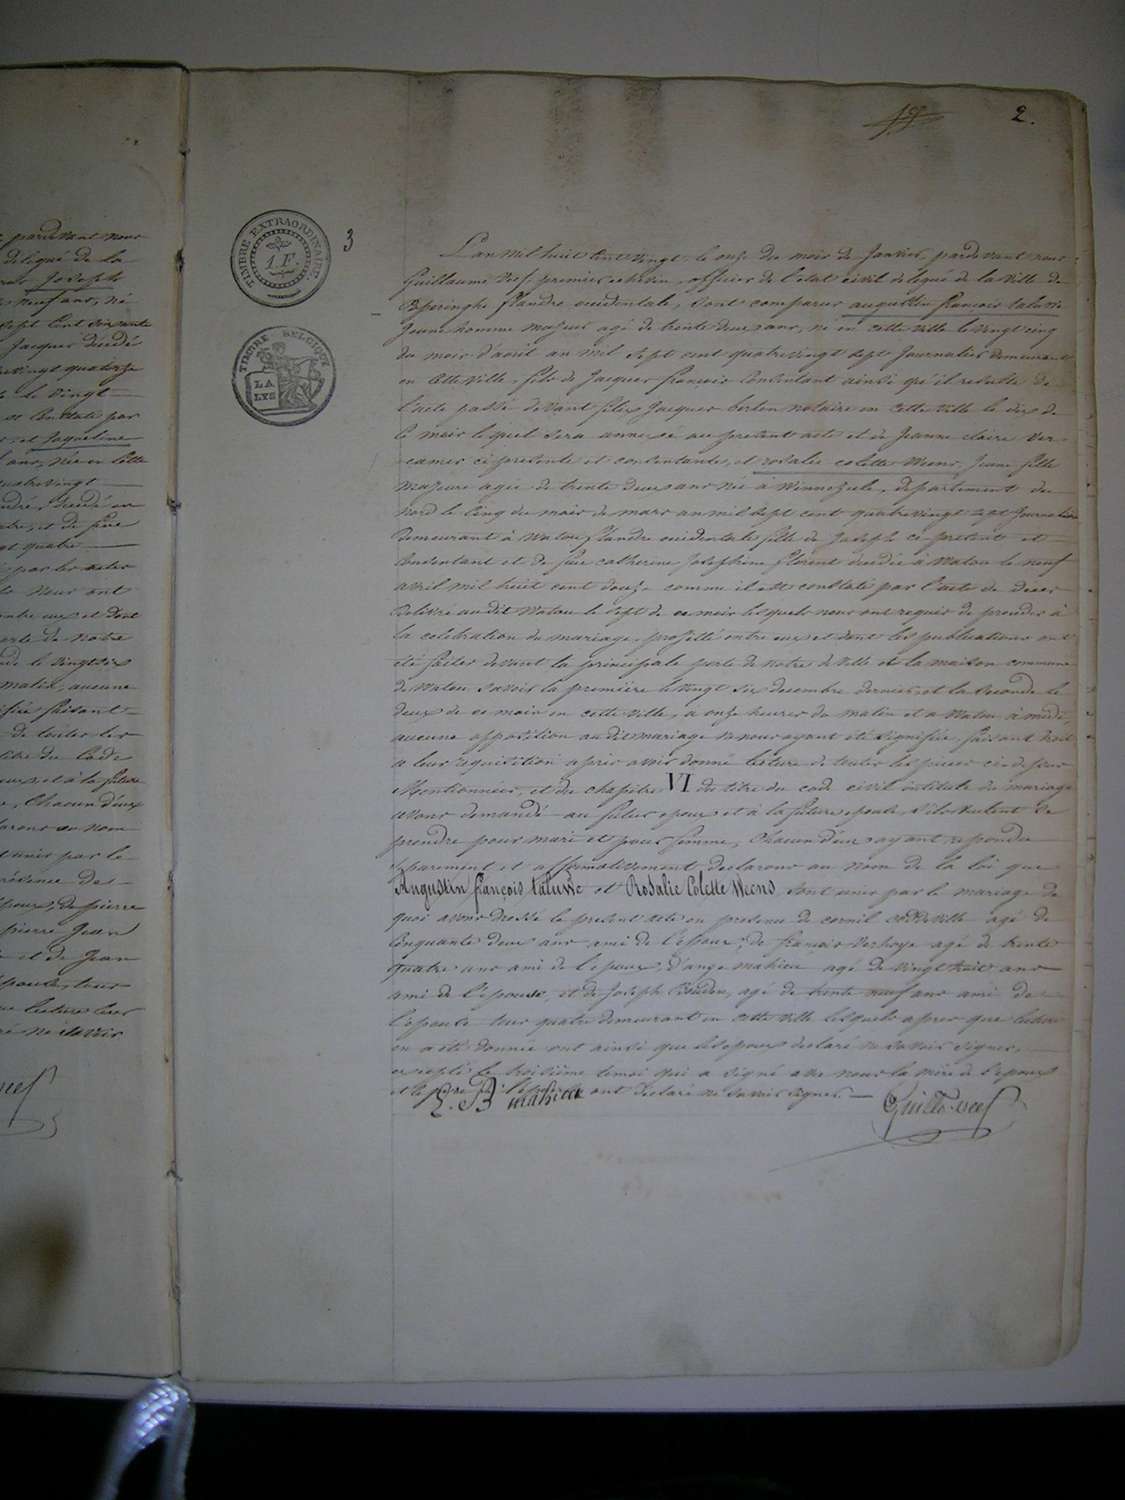 2.
3
TIMBRE EXTRAORDINAIRE
1. F.
TIMBRE BELGIQUE
LA LYS
pardevant nous
délégué de la
Joseph
neuf ans, né
sept cent soixante
Jacques décédé
vingt quatorze
le vingt
et constaté par
et Jaqueline
ans, née en cette
quatrevingt
décédé en
et de feue
quatre
par les actes
nous ont
entre eux et dont
porte de notre
le vingt six
matin, aucune
faisant
de toutes les
titre du Code
et à la future
Chacun d'eux
au nom
unis par le
présence de
époux, de pierre
pierre Jean
et de Jean
épouse, tous
lecture leur
ne savoir
L'an mil huit cent vingt le onze du mois de Janvier, pardevant nous
Guillaume Vees premier echevin, officier de l'état civil délégué de la Ville de
Poperinghe flandre occidentale, sont comparus augustin françois talusse
Jeune homme majeur agé de trente deux ans, né en cette ville le vingt cinq
du mois d'aoüt an mil sept cent quatrevingt sept Journalier demeurant
en cette ville, fils de Jacques françois Consentant ainsi qu'il resulte de
l'acte passé devant felix Jacques berten notaire en cette ville le dix de
ce mois lequel sera annexé au présent acte et de Jeanne claire Ver-
camer ci présente et consentante, et rosalie colette Weens, Jeune fille
majeure agée de trente deux ans née à Winnezeele, département du
nord le cinq du mois de mars an mil sept cent quatrevingt sept Journalière
demeurant à Watou flandre occidentale fille de Joseph ci présent et
Consentant et de feue catherine Josephine florent décédée à Watou le neuf
avril mil huit cent douze comme il est constaté par l'acte de décès
délivré audit Watou le sept de ce mois lesquels nous ont requis de procéder à
la celebration du mariage projetté entre eux et dont les publications ont
été faites devant la principale porte de notre de ville et la maison commune
de Watou savoir la première le vingt six decembre dernier, et la seconde le
deux de ce mois en cette ville, a onze heures du matin et a Watou à midi,
aucune opposition audit mariage ne nous ayant été signifiée, faisant droit
a leur requisition après avoir donné lecture de toutes les pièces ci dessus
Mentionnées, et du chapitre VI du titre du code civil intitulé du mariage
avons demandé au futur epoux et à la future epouse, s'ils veulent se
prendre pour mari et pour femme, chacun d'eux ayant repondu
separement et affirmativement declarons au nom de la loi que
Augustin françois talusse et Rosalie Colette Weens sont unis par le mariage de
quoi avons dressé le present acte en presence de cornil agé de
Cinquante deux ans ami de l'epoux, de françois Verhoye agé de trente
quatre ans ami de l'epoux, D'ange mahieu agé de vingt huit ans
ami de l'épouse, et de Joseph Boudou, agé de trente neuf ans ami de
l'épouse tous quatre demeurant en cette ville lesquels apres que lecture
en a été donnée ont ainsi que les epoux declaré ne savoir signer,
excepté le troisième temoin qui a signé avec nous la mère de l'epoux
et le père de l'épouse ont déclaré ne savoir signer.
B mahieu
Guille Vees